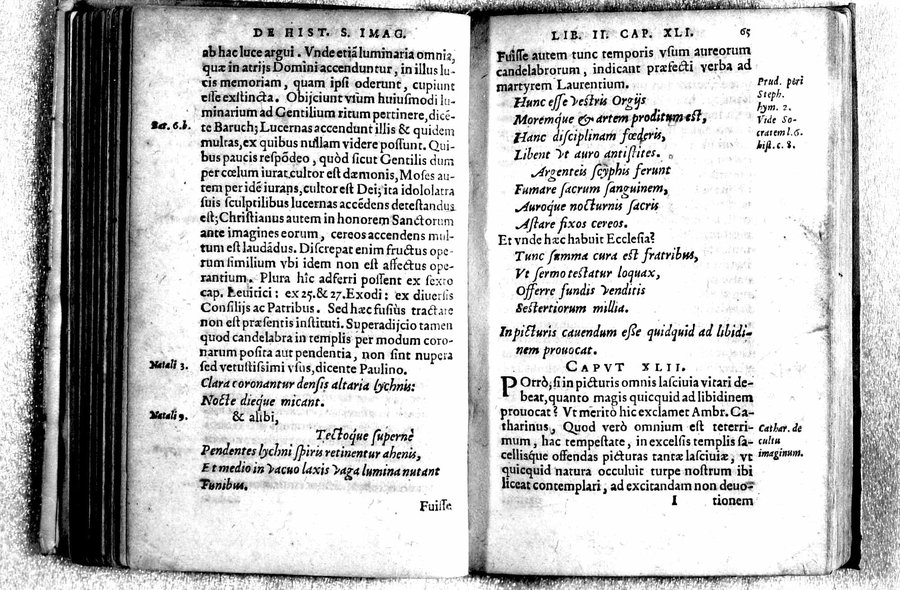 DE HIST. S. IMAG.
ab hac luce argui. Vnde etiã luminaria omnia,
quæ in atrijs Domini accenduntur, in illus lu-
cis memoriam, quam ipsi oderunt, cupiunt
esse exstincta. Obijciunt vsum huiusmodi lu-
minarium ad Gentilium ritum pertinere, dicẽ-
Bar. 6. b.
te Baruch; Lucernas accendunt illis & quidem
multas, ex quibus nullam videre possunt. Qui-
bus paucis respõdeo, quòd sicut Gentilis dum
per cœlum iurat, cultor est dæmonis, Moses au-
tem per idẽ iurans, cultor est Dei; ita idololatra
suis sculptilibus lucernas accẽdens detestandus
est; Christianus autem in honorem Sanctorum
ante imagines eorum, cereos accendens mul-
tum est laudãdus. Discrepat enim fructus ope-
rum similium vbi idem non est affectus ope-
rantium. Plura hîc adferri possent ex sexto
cap. Leuitici: ex 25. & 27. Exodi: ex diuersis
Consilijs ac Patribus. Sed hæc fusiùs tractare
non est præsentis instituti. Superadijcio tamen
quod candelabra in templis per modum coro-
narum posita aut pendentia, non sint nupera
Natali 3.
sed vetustissimi vsus, dicente Paulino.
Clara coronantur densis altaria lychnis:
Nocte dieque micant.
Natali 9.
& alibi,
Tectoque supernè
Pendentes lychni spiris retinentur ahenis,
Et medio in vacuo laxis vaga lumina nutant
Funibus.
Fuisse
LIB. II. CAP. XLI. 65
Fuisse autem tunc temporis vsum aureorum
candelabrorum, indicant præfecti verba ad
martyrem Laurentium.
Prud. peri
Steph.
hym. 2.
Vide So-
cratem l. 6.
hist. c. 8.
Hunc esse vestris Orgijs
Moremque & artem proditum est,
Hanc disciplinam fœderis,
Libent vt auro antistites.
Argenteis scyphis ferunt
Fumare sacrum sanguinem,
Auroque nocturnis sacris
Astare fixos cereos.
Et vnde hæc habuit Ecclesia?
Tunc summa cura est fratribus,
Vt sermo testatur loquax,
Offerre fundis venditis
Sestertiorum millia.
In picturis cauendum esse quidquid ad libidi-
nem prouocat.
CAPVT XLII.
POrrò, si in picturis omnis lasciuia vitari de-
beat, quanto magis quicquid ad libidinem
prouocat? Vt meritò hic exclamet Ambr. Ca-
tharinus, Quod verò omnium est teterri-
mum, hac tempestate, in excelsis templis sa-
cellisque offendas picturas tantæ lasciuiæ, vt
quicquid natura occuluit turpe nostrum ibi
liceat contemplari, ad excitandam non deuo-
Cathar. de
cultu
imaginum.
I tionem